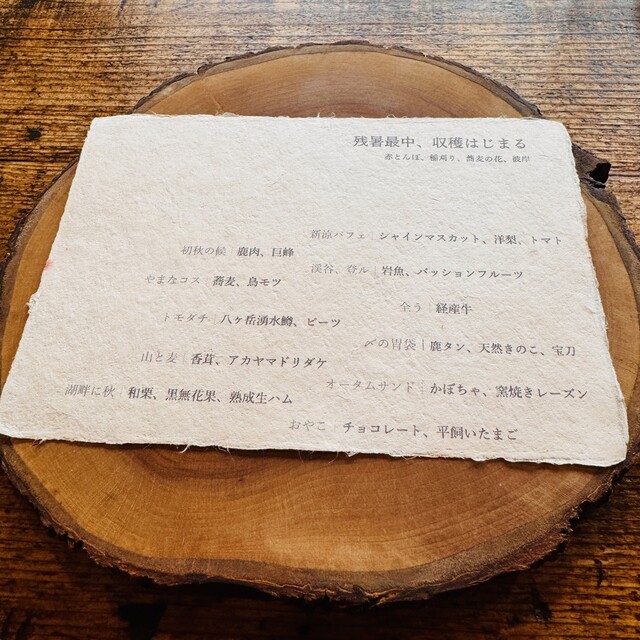 残暑最中、収穫はじまる
赤とんぼ、稲刈り、蕎麦の花、彼岸
新涼パフェ|シャインマスカット、洋梨、トマト
初秋の候|鹿肉、巨峰
渓谷、登ル|岩魚、パッションフルーツ
やまなコス|蕎麦、鳥モツ
全う|経産牛
トモダチ|八ヶ岳湧水鱒、ビーツ
〆の胃袋|鹿タン、天然きのこ、宝刀
山と麦|香茸、アカヤマドリダケ
オータムサンド|かぼちゃ、窯焼きレーズン
湖畔に秋|和栗、黒無花果、熟成生ハム
おやこ|チョコレート、平飼いたまご